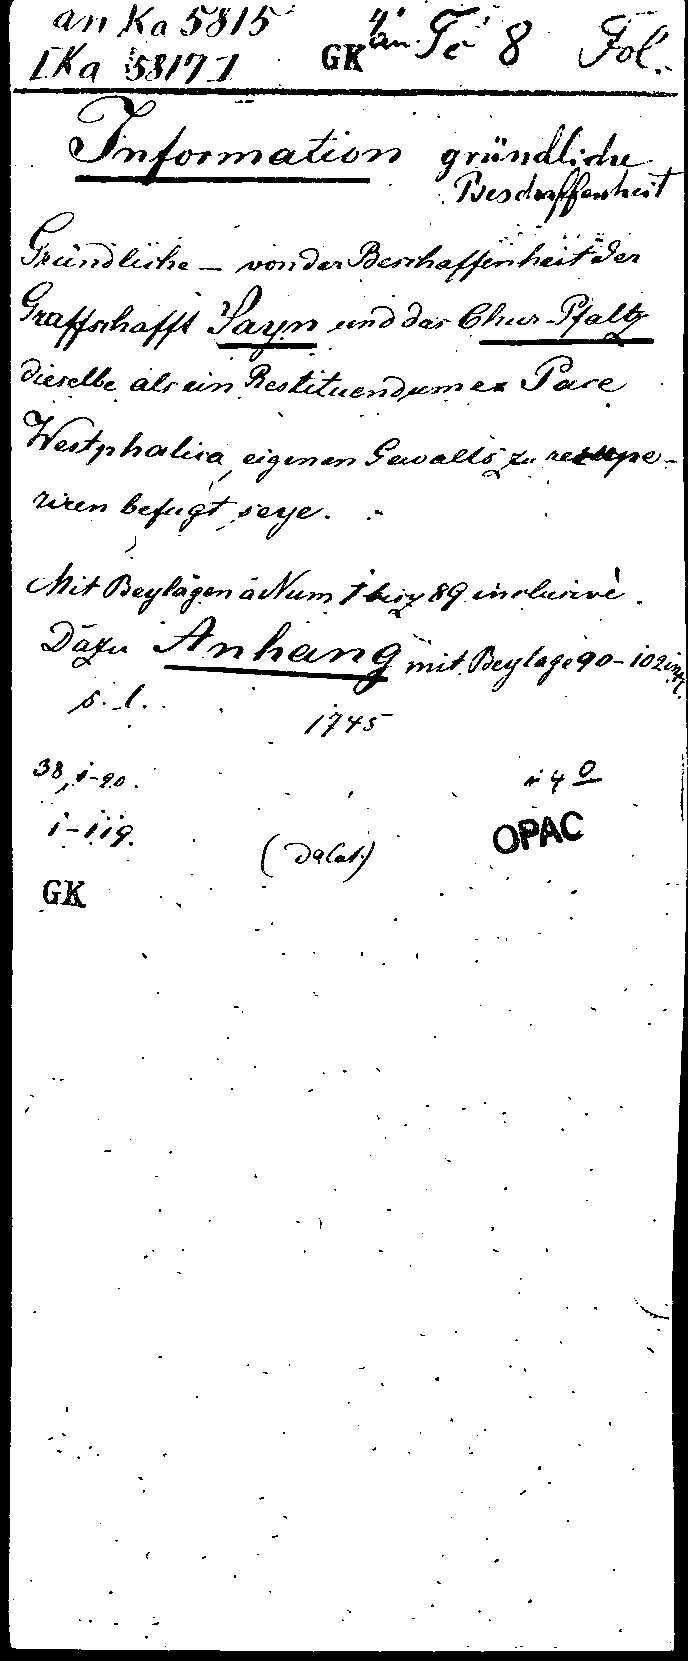 an Ka 5815
[Ka 5817]
GK 4° an: Tc 8 Fol.
Information gründliche
Beschaffenheit
Gründliche – von der Beschaffenheit der
Graffschafft Sayn und das Chur-Pfaltz
dieselbe als ein Restituendum ex Pace
Westphalica, eigenen Gewalts zu recupe-
riren befugt seye.
Mit Beylagen à Num 1 bisz 89 inclusivè.
Dazu Anhang mit Beylage 90-102
s. l. 1745
38, 1-20. 4°
1-119. OPAC
GK